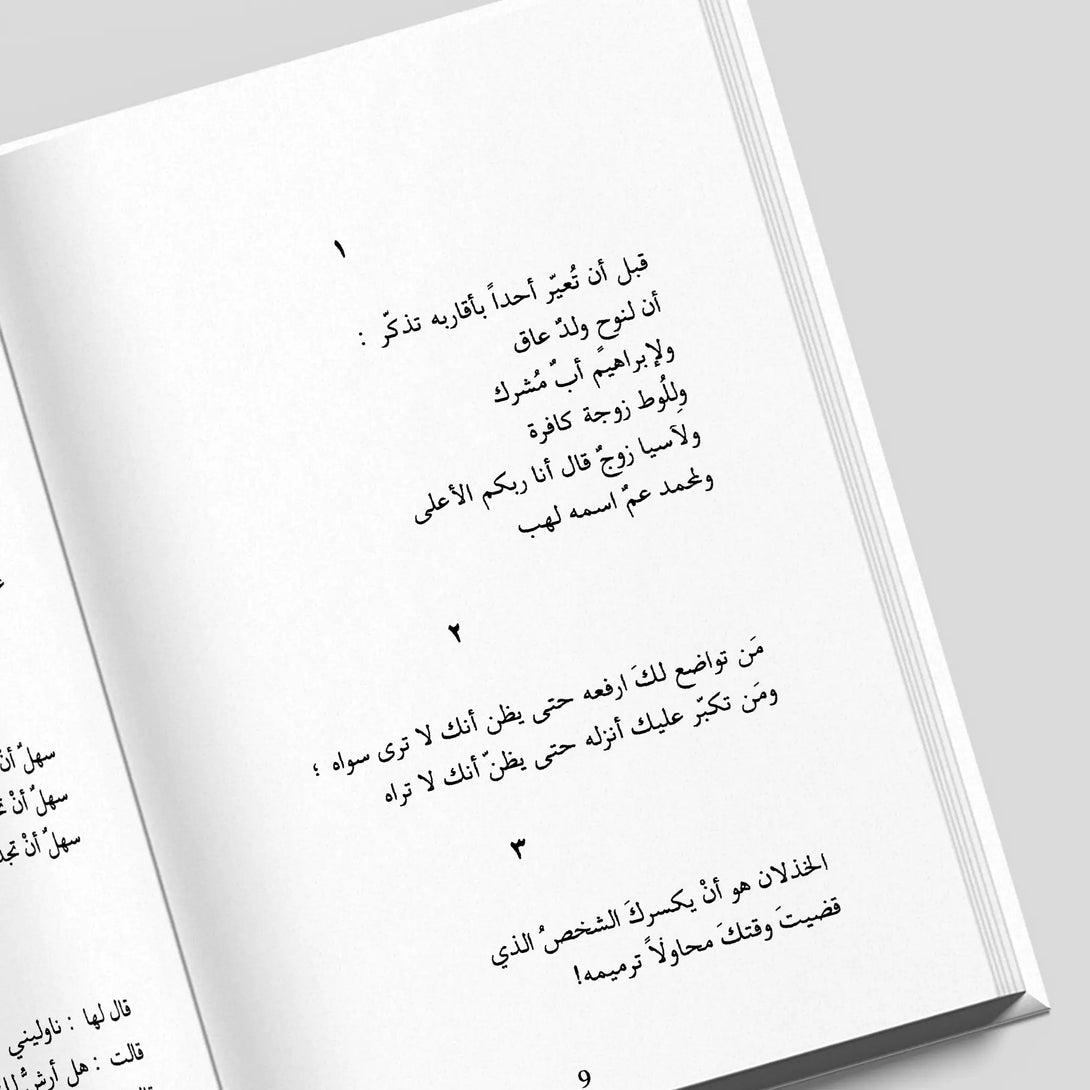 ١
قبل أن تُعيّر أحداً بأقاربه تذكّر :
أن لنوحٍ ولدٌ عاق
ولإبراهيمً أبٌ مُشرك
وللُوطٍ زوجة كافرة
ولآسيا زوجٌ قال أنا ربكم الأعلى
ولمحمد عمٌ اسمه لهب
٢
مَن تواضع لكَ ارفعه حتى يظن أنك لا ترى سواه ؛
ومَن تكبّر عليك أنزله حتى يظنّ أنك لا تراه
٣
الخذلان هو أنْ يكسركَ الشخصُ الذي
قضيتَ وقتكَ محاولاً ترميمه!
9
سهلٌ أنْ
سهلٌ أنْ
سهلٌ أنْ
قال لها : ناوليني
قالت : هل أرشُّ